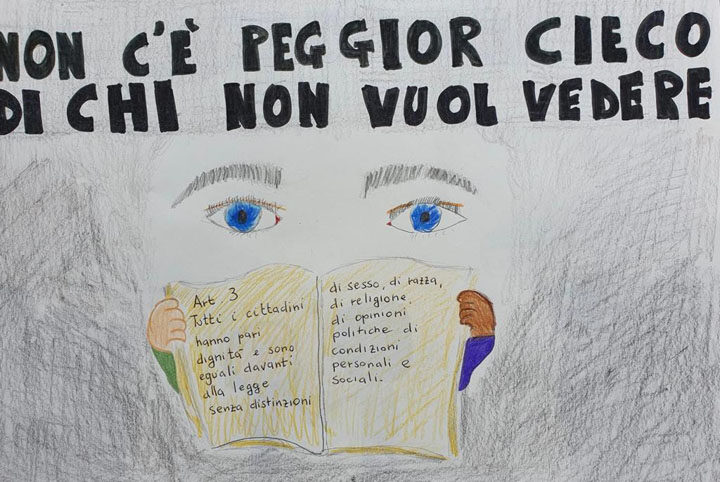 NON C'È PEGGIOR CIECO
DI CHI NON VUOL VEDERE
Art 3
Tutti i cittadini
hanno pari
dignità e sono
eguali davanti
alla legge
senza distinzioni
di sesso, di razza,
di religione,
di opinioni
politiche di
condizioni
personali e
sociali.